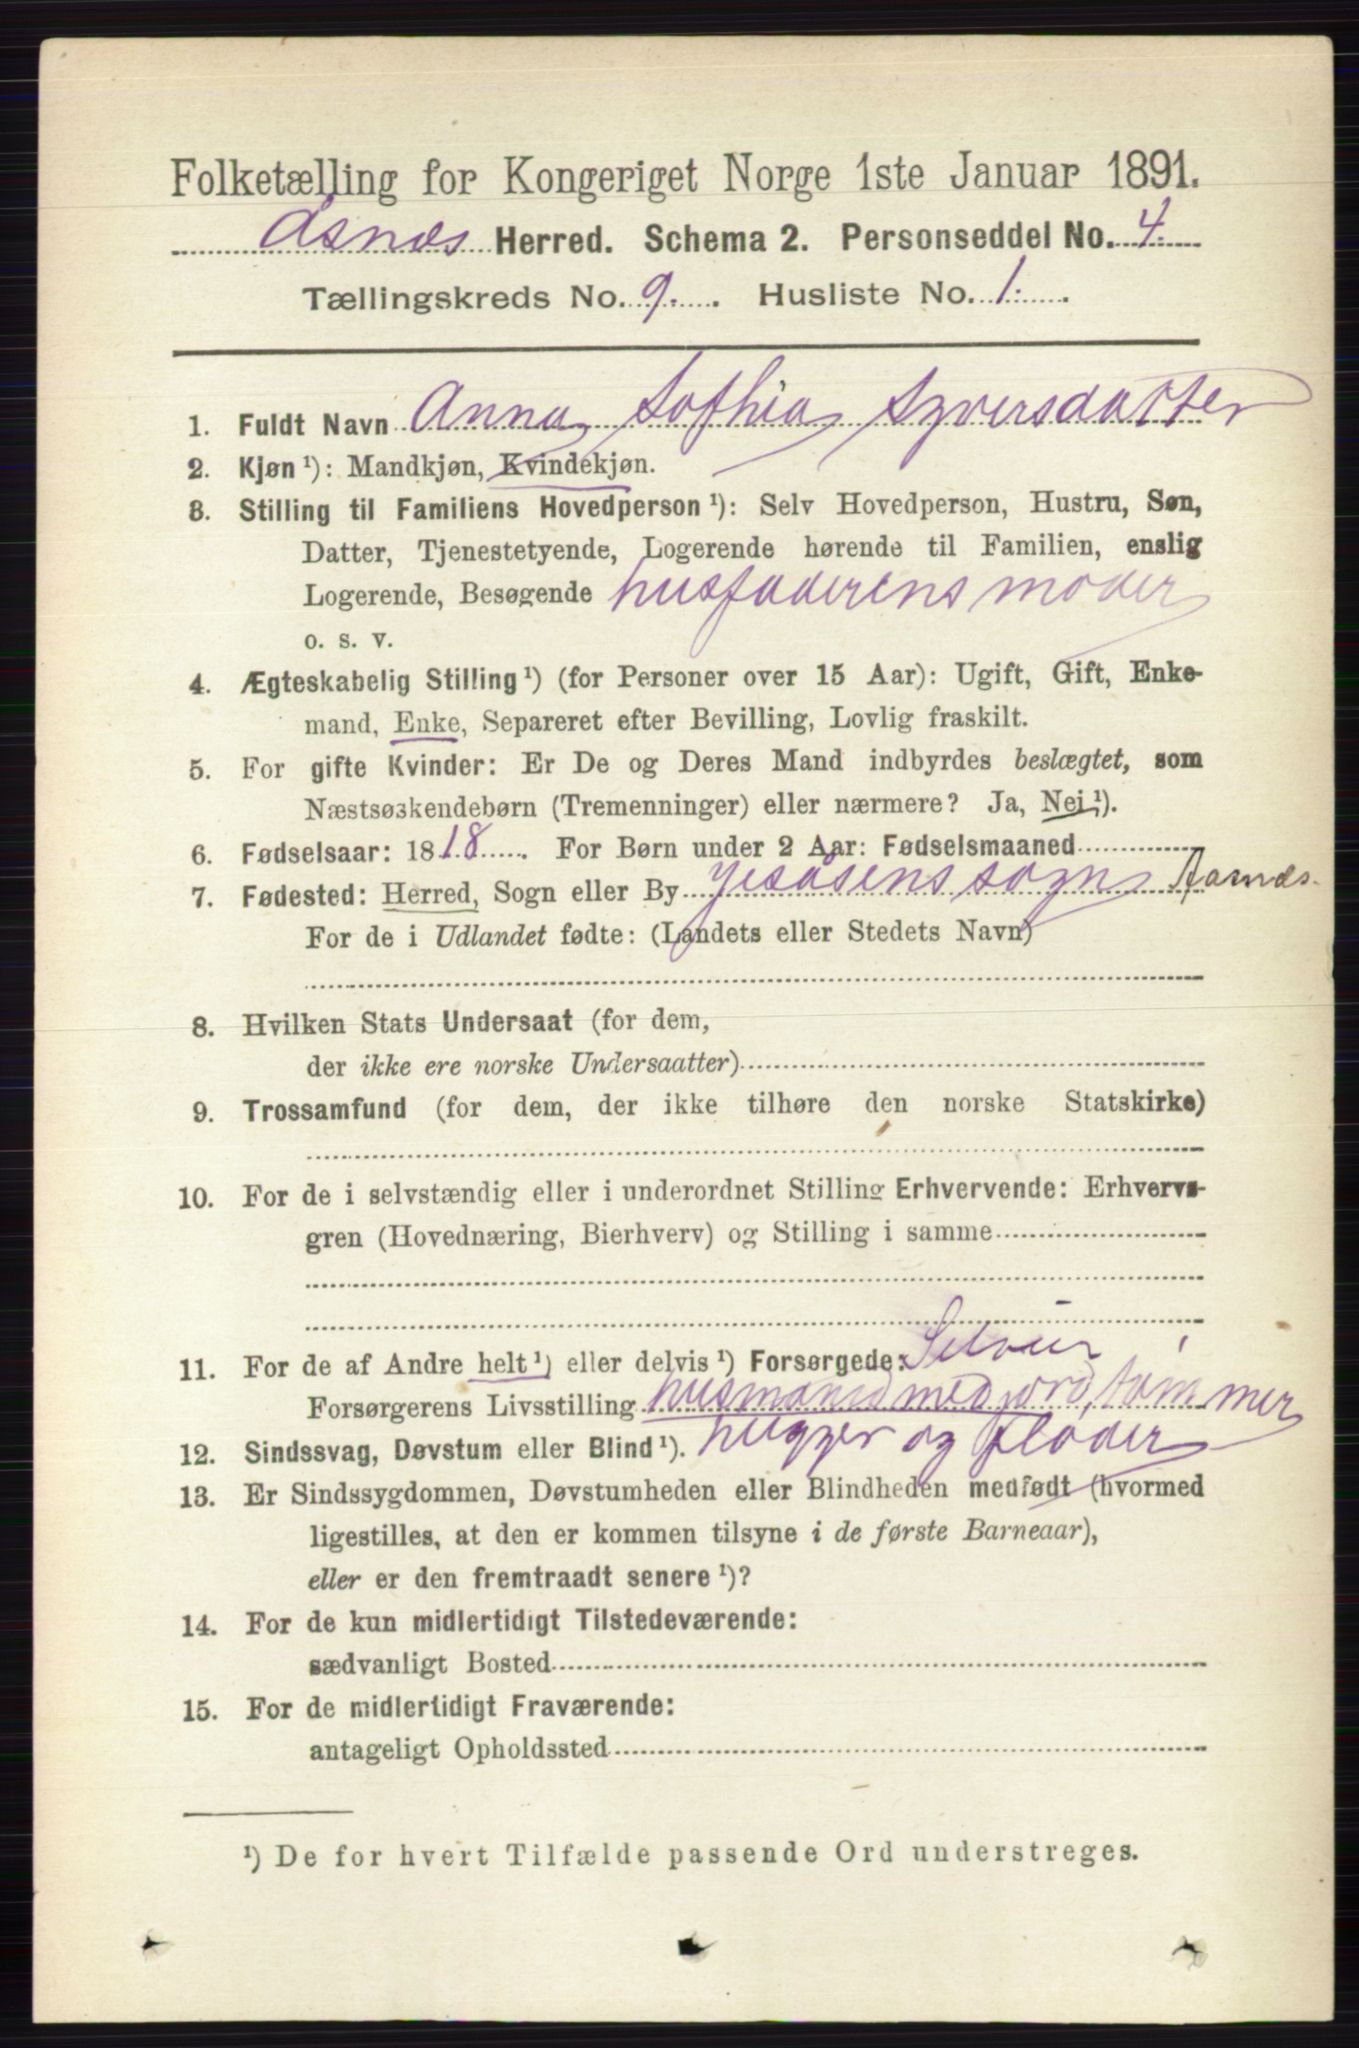 Folketælling for Kongeriget Norge 1ste Januar 1891.
Åsnes Herred. Schema 2. Personseddel No. 4.
Tællingskreds No. 9. Husliste No. 1.
1. Fuldt Navn Anna Sofhia Syversdatter
2. Kjøn ¹): Mandkjøn, Kvindekjøn.
3. Stilling til Familiens Hovedperson ¹): Selv Hovedperson, Hustru, Søn,
Datter, Tjenestetyende, Logerende hørende til Familien, enslig
Logerende, Besøgende husfaderens moder
o. s. v.
4. Ægteskabelig Stilling ¹) (for Personer over 15 Aar): Ugift, Gift, Enke-
mand, Enke, Separeret efter Bevilling, Lovlig fraskilt.
5. For gifte Kvinder: Er De og Deres Mand indbyrdes beslægtet, som
Næstsøskendebørn (Tremenninger) eller nærmere? Ja, Nei ¹).
6. Fødselsaar: 1818. For Børn under 2 Aar: Fødselsmaaned
7. Fødested: Herred, Sogn eller By Gjesåsens sogn Aasnæs.
For de i Udlandet fødte: (Landets eller Stedets Navn)
8. Hvilken Stats Undersaat (for dem,
der ikke ere norske Undersaatter)
9. Trossamfund (for dem, der ikke tilhøre den norske Statskirke)
10. For de i selvstændig eller i underordnet Stilling Erhvervende: Erhvervs-
gren (Hovednæring, Bierhverv) og Stilling i samme
11. For de af Andre helt ¹) eller delvis ¹) Forsørgede: Selveier
Forsørgerens Livsstilling husmand med jord, tømmer
12. Sindssvag, Døvstum eller Blind ¹). hugger og fløder
13. Er Sindssygdommen, Døvstumheden eller Blindheden medfødt (hvormed
ligestilles, at den er kommen tilsyne i de første Barneaar),
eller er den fremtraadt senere ¹)?
14. For de kun midlertidigt Tilstedeværende:
sædvanligt Bosted
15. For de midlertidigt Fraværende:
antageligt Opholdssted
¹) De for hvert Tilfælde passende Ord understreges.